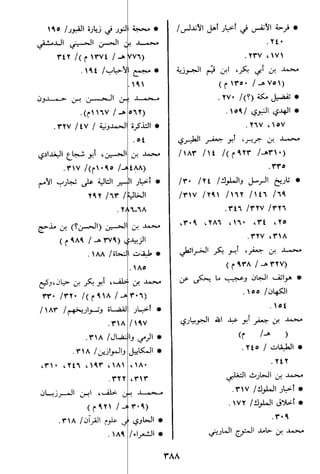 * فرحة الأنفس في أخبار أهل الأندلس/
٢٤٠.
٢٣٧، ١٧١.
محمد بن أبي بكر، ابن قيّم الجوزية
(٧٥١ هـ/ ١٣٥٠ م)
* تفضيل مكة (؟)/ ٢٧٠.
* الهدي النبوي/ ١٥٩،
١٥٧، ٢٦٧.
محمد بن جرير، أبو جعفر الطبري
(٣١٠هـ/ ٩٢٣ م)/ ١٤، ١٨٣/
٣٣٥.
* تاريخ الرسل والملوك/ ٢٤، ٣٠/
٦٩، ١٤٦/ ١٦٢، ٢٩١، ٣١٧/
٣٢٦، ٣٢٧/ ٣٤٦.
٢٥، ٣٤، ١٦٠، ٢٨٦، ٣٠٩،
٣١٨، ٣٢٧.
محمد بن جعفر، أبو بكر الخرائطي
(٣٢٧ هـ/ ٩٣٨ م)
* هواتف الجان وعجيب ما يحكى عن
الكهان/ ١٥٥.
١٥٤.
محمد بن جعفر أبو عبد الله الجوبياري
( هـ/ م)
* الطبقات/ ٢٤٥.
٢٤٢.
محمد بن الحارث التغلبي
* أخبار الملوك/ ٣١٧.
* أخلاق الملوك/ ١٧٢.
٣٠٩.
محمد بن حامد المتوج الماريني
* محجة النور في زيارة القبور/ ١٩٥
محمد بن الحسن الحسيني الدمشقي
(٧٧٦ هـ/ ١٣٧٤ م)/ ٣٤٢
* مجمع الأحباب/ ١٩٤.
١٩١.
محمد بن الحسن بن حمدون
(٥٦٢ هـ/ ١١٦٧م).
* التذكرة الحمدونية/ ٤٧/ ٣٢٧.
٥٤.
محمد بن الحسين، أبو شجاع البغدادي
(٤٨٨ هـ/ ١٠٩٥م)/ ٣٢٧
* أخبار السير التالية على تجارب الأمم
الخالية/ ٦٣، ٢٩٢
٦٨ـ٢٨٦.
محمد بن الحسين (الحسن؟) بن مذحج
الزبيدي (٣٧٩ هـ/ ٩٨٩ م)
* طبقات النحاة/ ١٨٨.
١٨٥.
محمد بن خلف، أبو بكر بن حيان، وكيع
(٣٠٦ هـ/ ٩١٨ م)/ ٣٢٠/ ٣٣٠
* أخبار القضاة وتواريخهم/ ١٨٣/
١٩٧/ ٣١٨.
* الرمي والنضال/ ٣١٨.
* المكاييل والموازين/ ٣١٨.
١٨٠، ١٨١، ١٩٣، ٢٤٦، ٣١٠،
٣١٣، ٣٢٢.
محمد بن خلف، ابن المرزبان
(٣٠٩ هـ/ ٩٢١ م)
* الحاوي في علوم القرآن/ ٣١٨.
* الشعراء/ ١٨٩.
٣٨٨